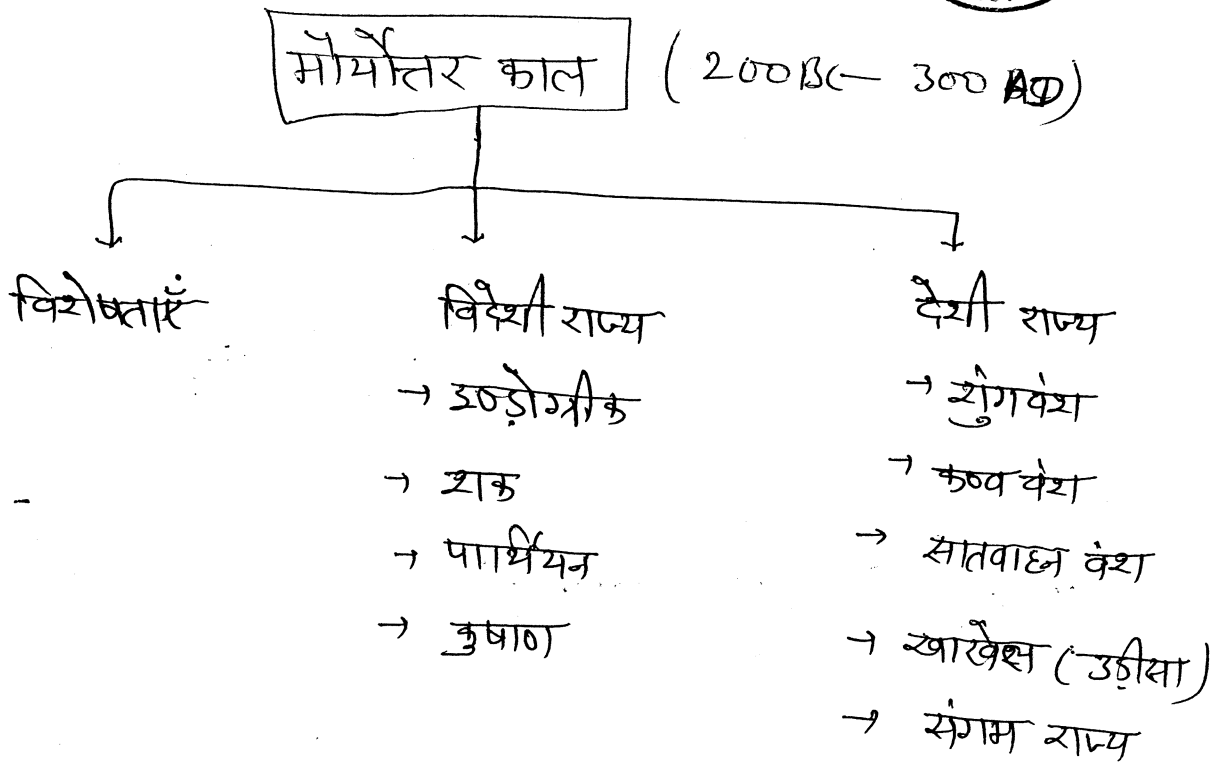 मौर्योत्तर काल (200BC - 300 AD)
विशेषताएँ
विदेशी राज्य
→ इण्ड़ोग्रीक
→ शक
→ पार्थियन
→ कुषाण
देशी राज्य
→ शुंगवंश
→ कण्व वंश
→ सातवाहन वंश
→ (उड़ीसा)
→ संगम राज्य